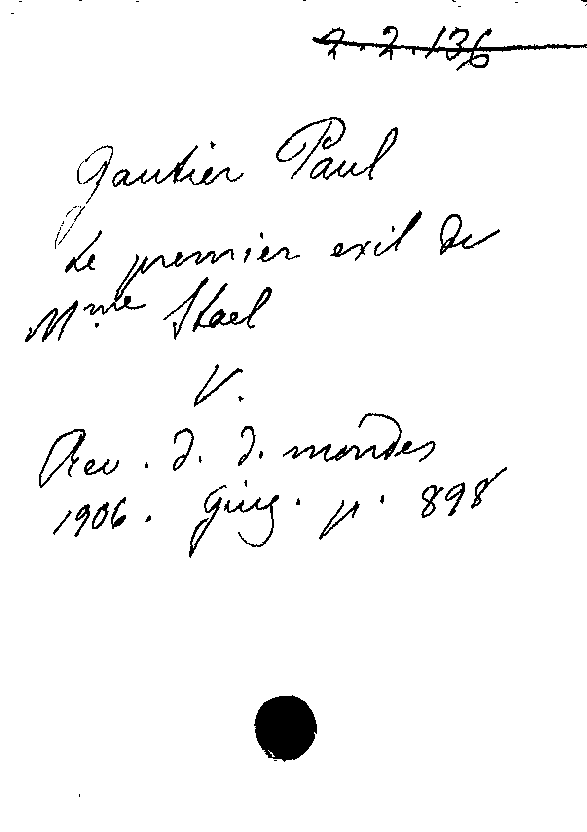 2.2.136
Gautier Paul
Le premier exil de
Mme Stael
V.
Rev. d. d. mondes
1906. Giug. p. 898